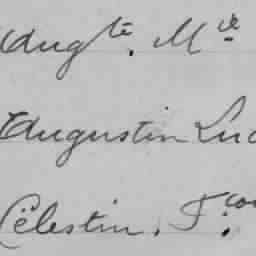 Augte. Mie
Augustin Luc
Célestin. Fcoi